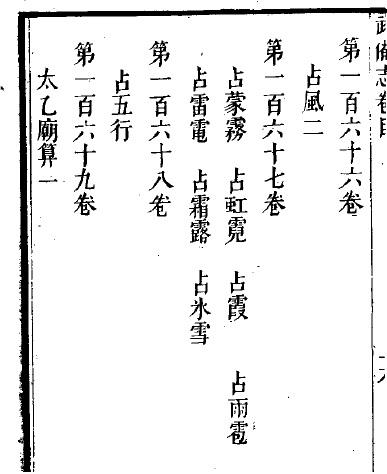 武備志卷目
第一百六十六卷
占風二
第一百六十七卷
占蒙霧 占虹霓 占霞 占雨雹
占雷電 占霜露 占氷雪
第一百六十八卷
占五行
第一百六十九卷
太乙廟算一